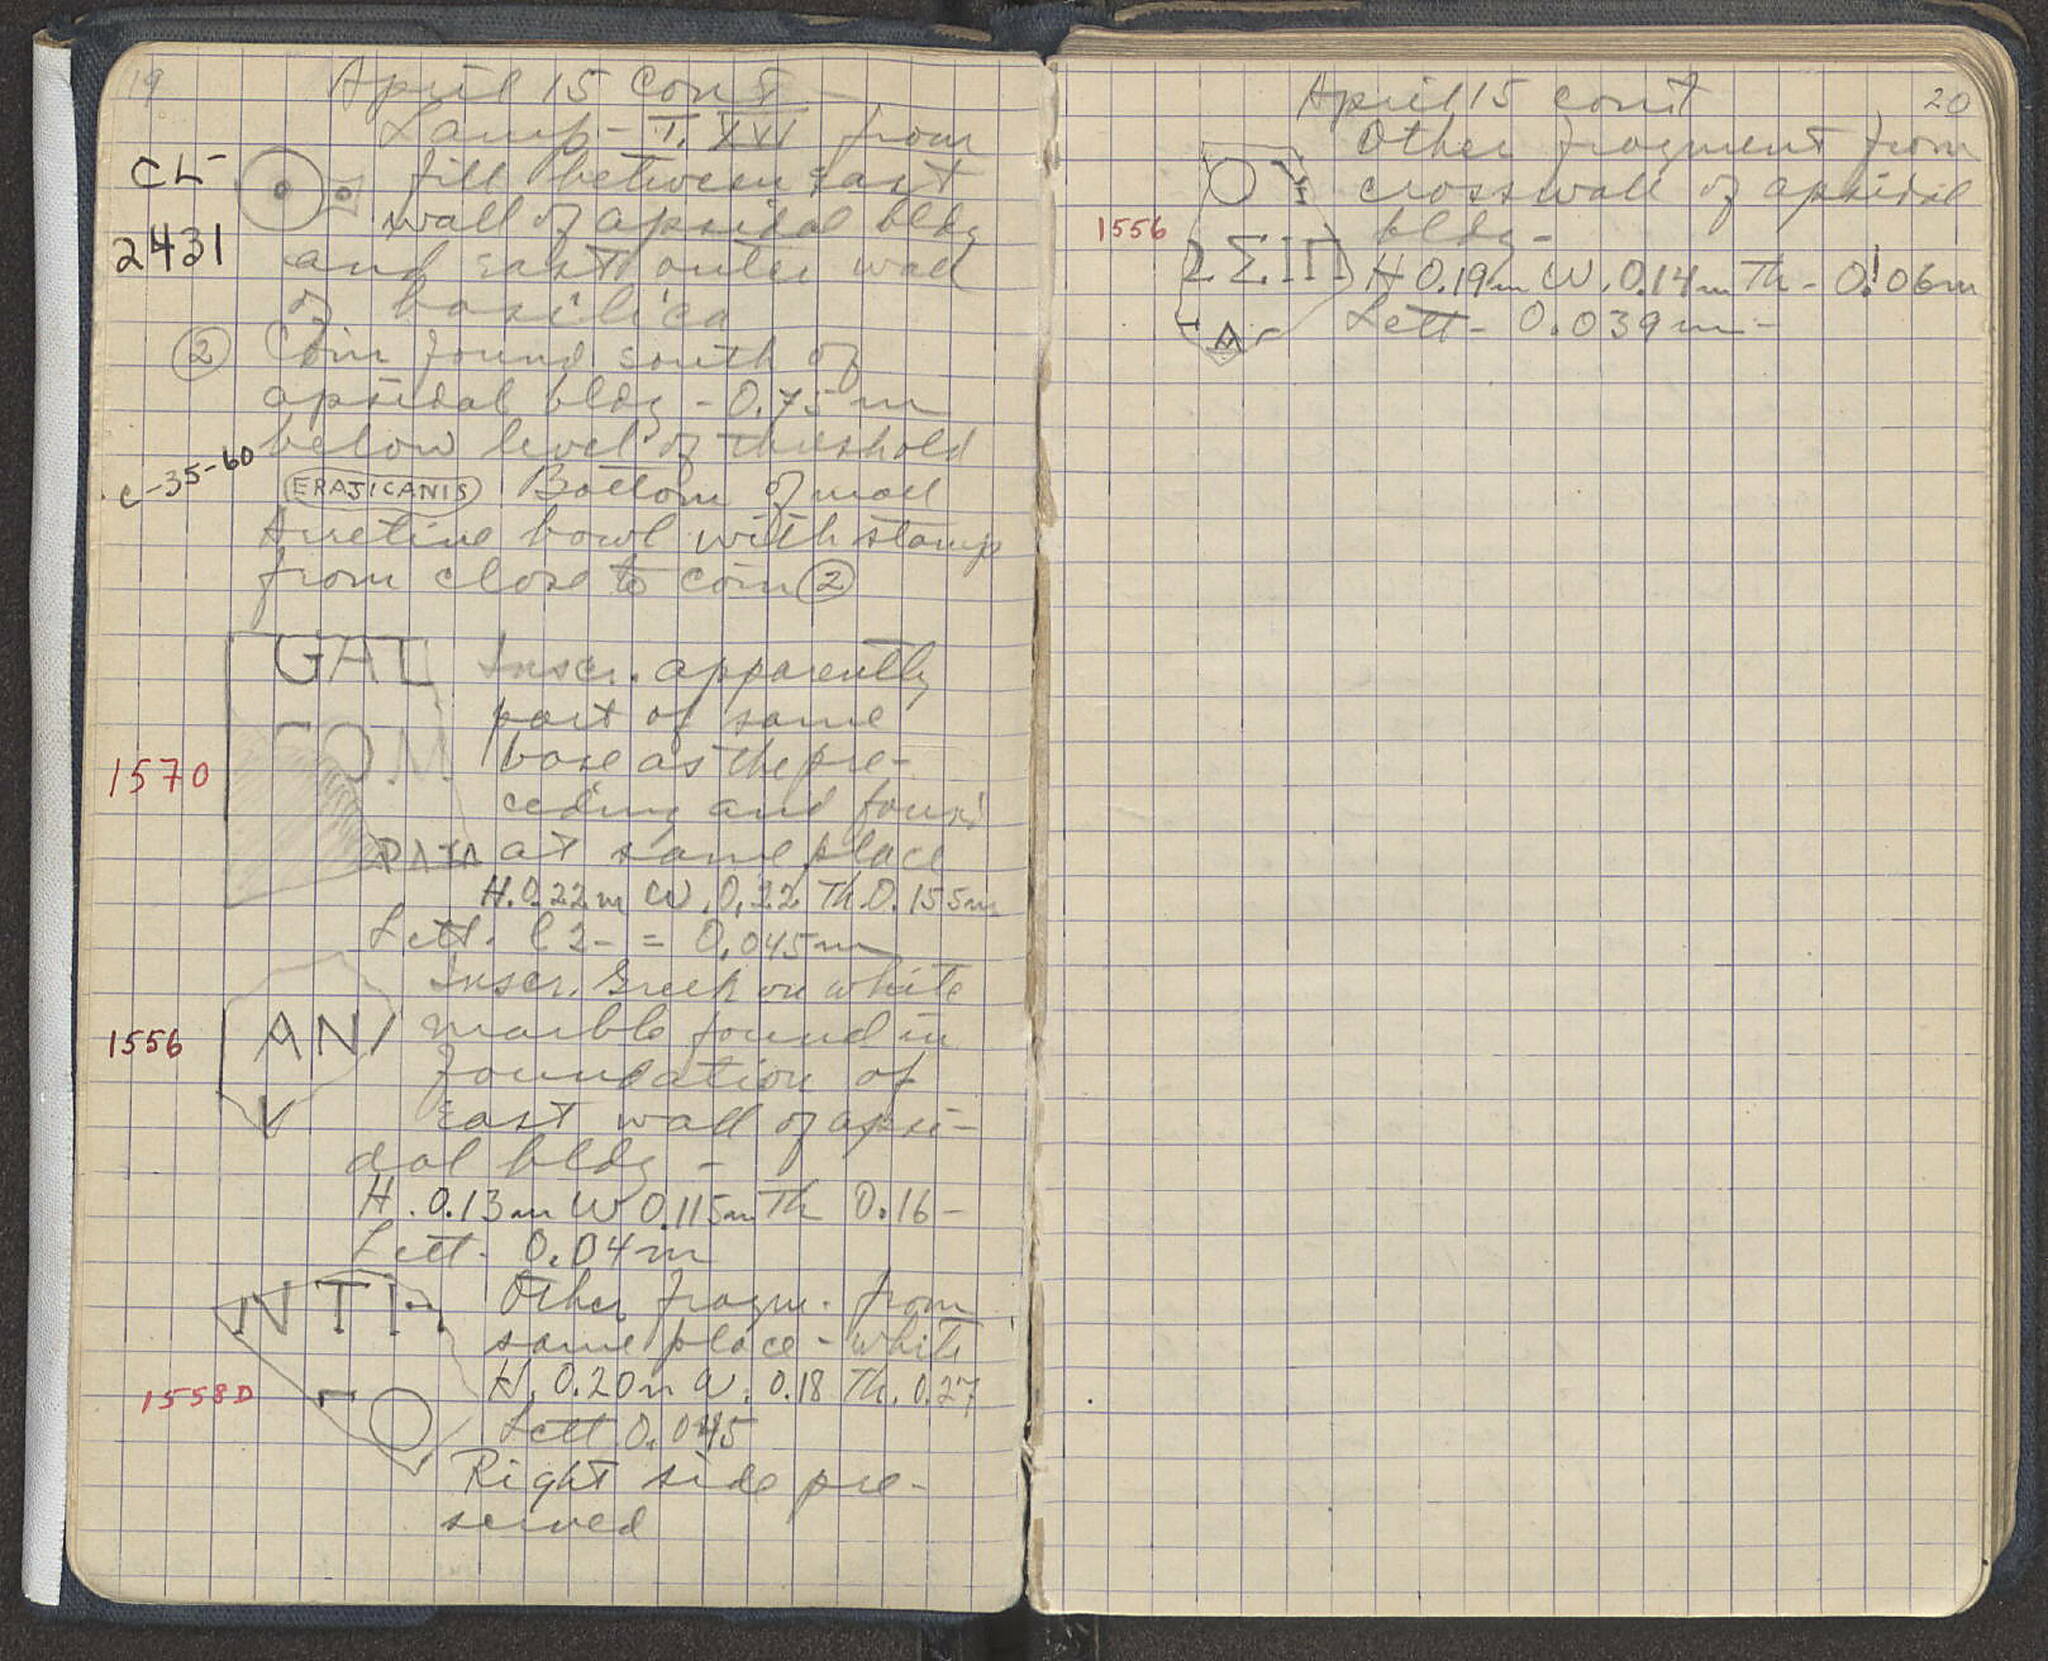 19
April 15 Cont
Lamp - T. XVI from
CL-
2431
fill between east
wall of apsidal bldg
and east outer wall
of basilica
② Coin found south of
apsidal bldg - 0.75 m
below level of threshold
C-35-60
ERASICANIS Bottom of
Arretine bowl with stamp
from close to coin ②
GAL
COM
PATA
1570
Inscr. apparently
part of same
base as the pre-
ceding and found
at same place
H. 0.22 m W. 0.22 Th 0.155 m
Lett. l 2 - = 0.045 m
AN
V
1556
Inscr. Greek on white
marble found in
foundation of
east wall of apsi-
dal bldg -
H. 0.13 m W 0.115 m Th 0.16 -
Lett - 0.04 m
NTH
O
1558D
Other fragm. from
same place - white
H. 0.20 m W. 0.18 Th. 0.27
Lett 0.045
Right side pre-
served
April 15 cont
20
Other fragment from
crosswall of apsidal
bldg -
1556
ΣΣΙΠ
Α
H 0.19 m W. 0.14 m Th - 0.06 m
Lett - 0.039 m -